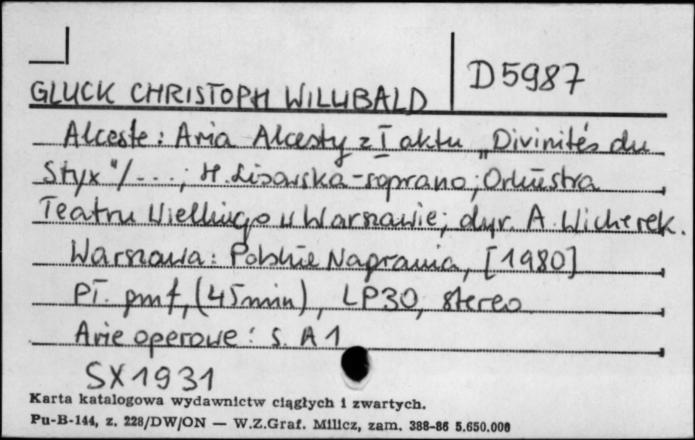 D5987
GLUCK CHRISTOPH WILLIBALD
Alceste: Aria Alcesty z I aktu „Divinités du
Styx"/ ...; H. Lisowska-soprano; Orkiestra
Teatru Wielkiego w Warszawie; dyr. A. Wicherek.
Warszawa: Polskie Nagrania, [1980]
Pł. gmf, (45min), LP30, stereo
Arie operowe: s. A1
SX1931
Karta katalogowa wydawnictw ciągłych i zwartych.
Pu-B-144, z. 228/DW/ON — W.Z.Graf. Milicz, zam. 388-86 5.650.000